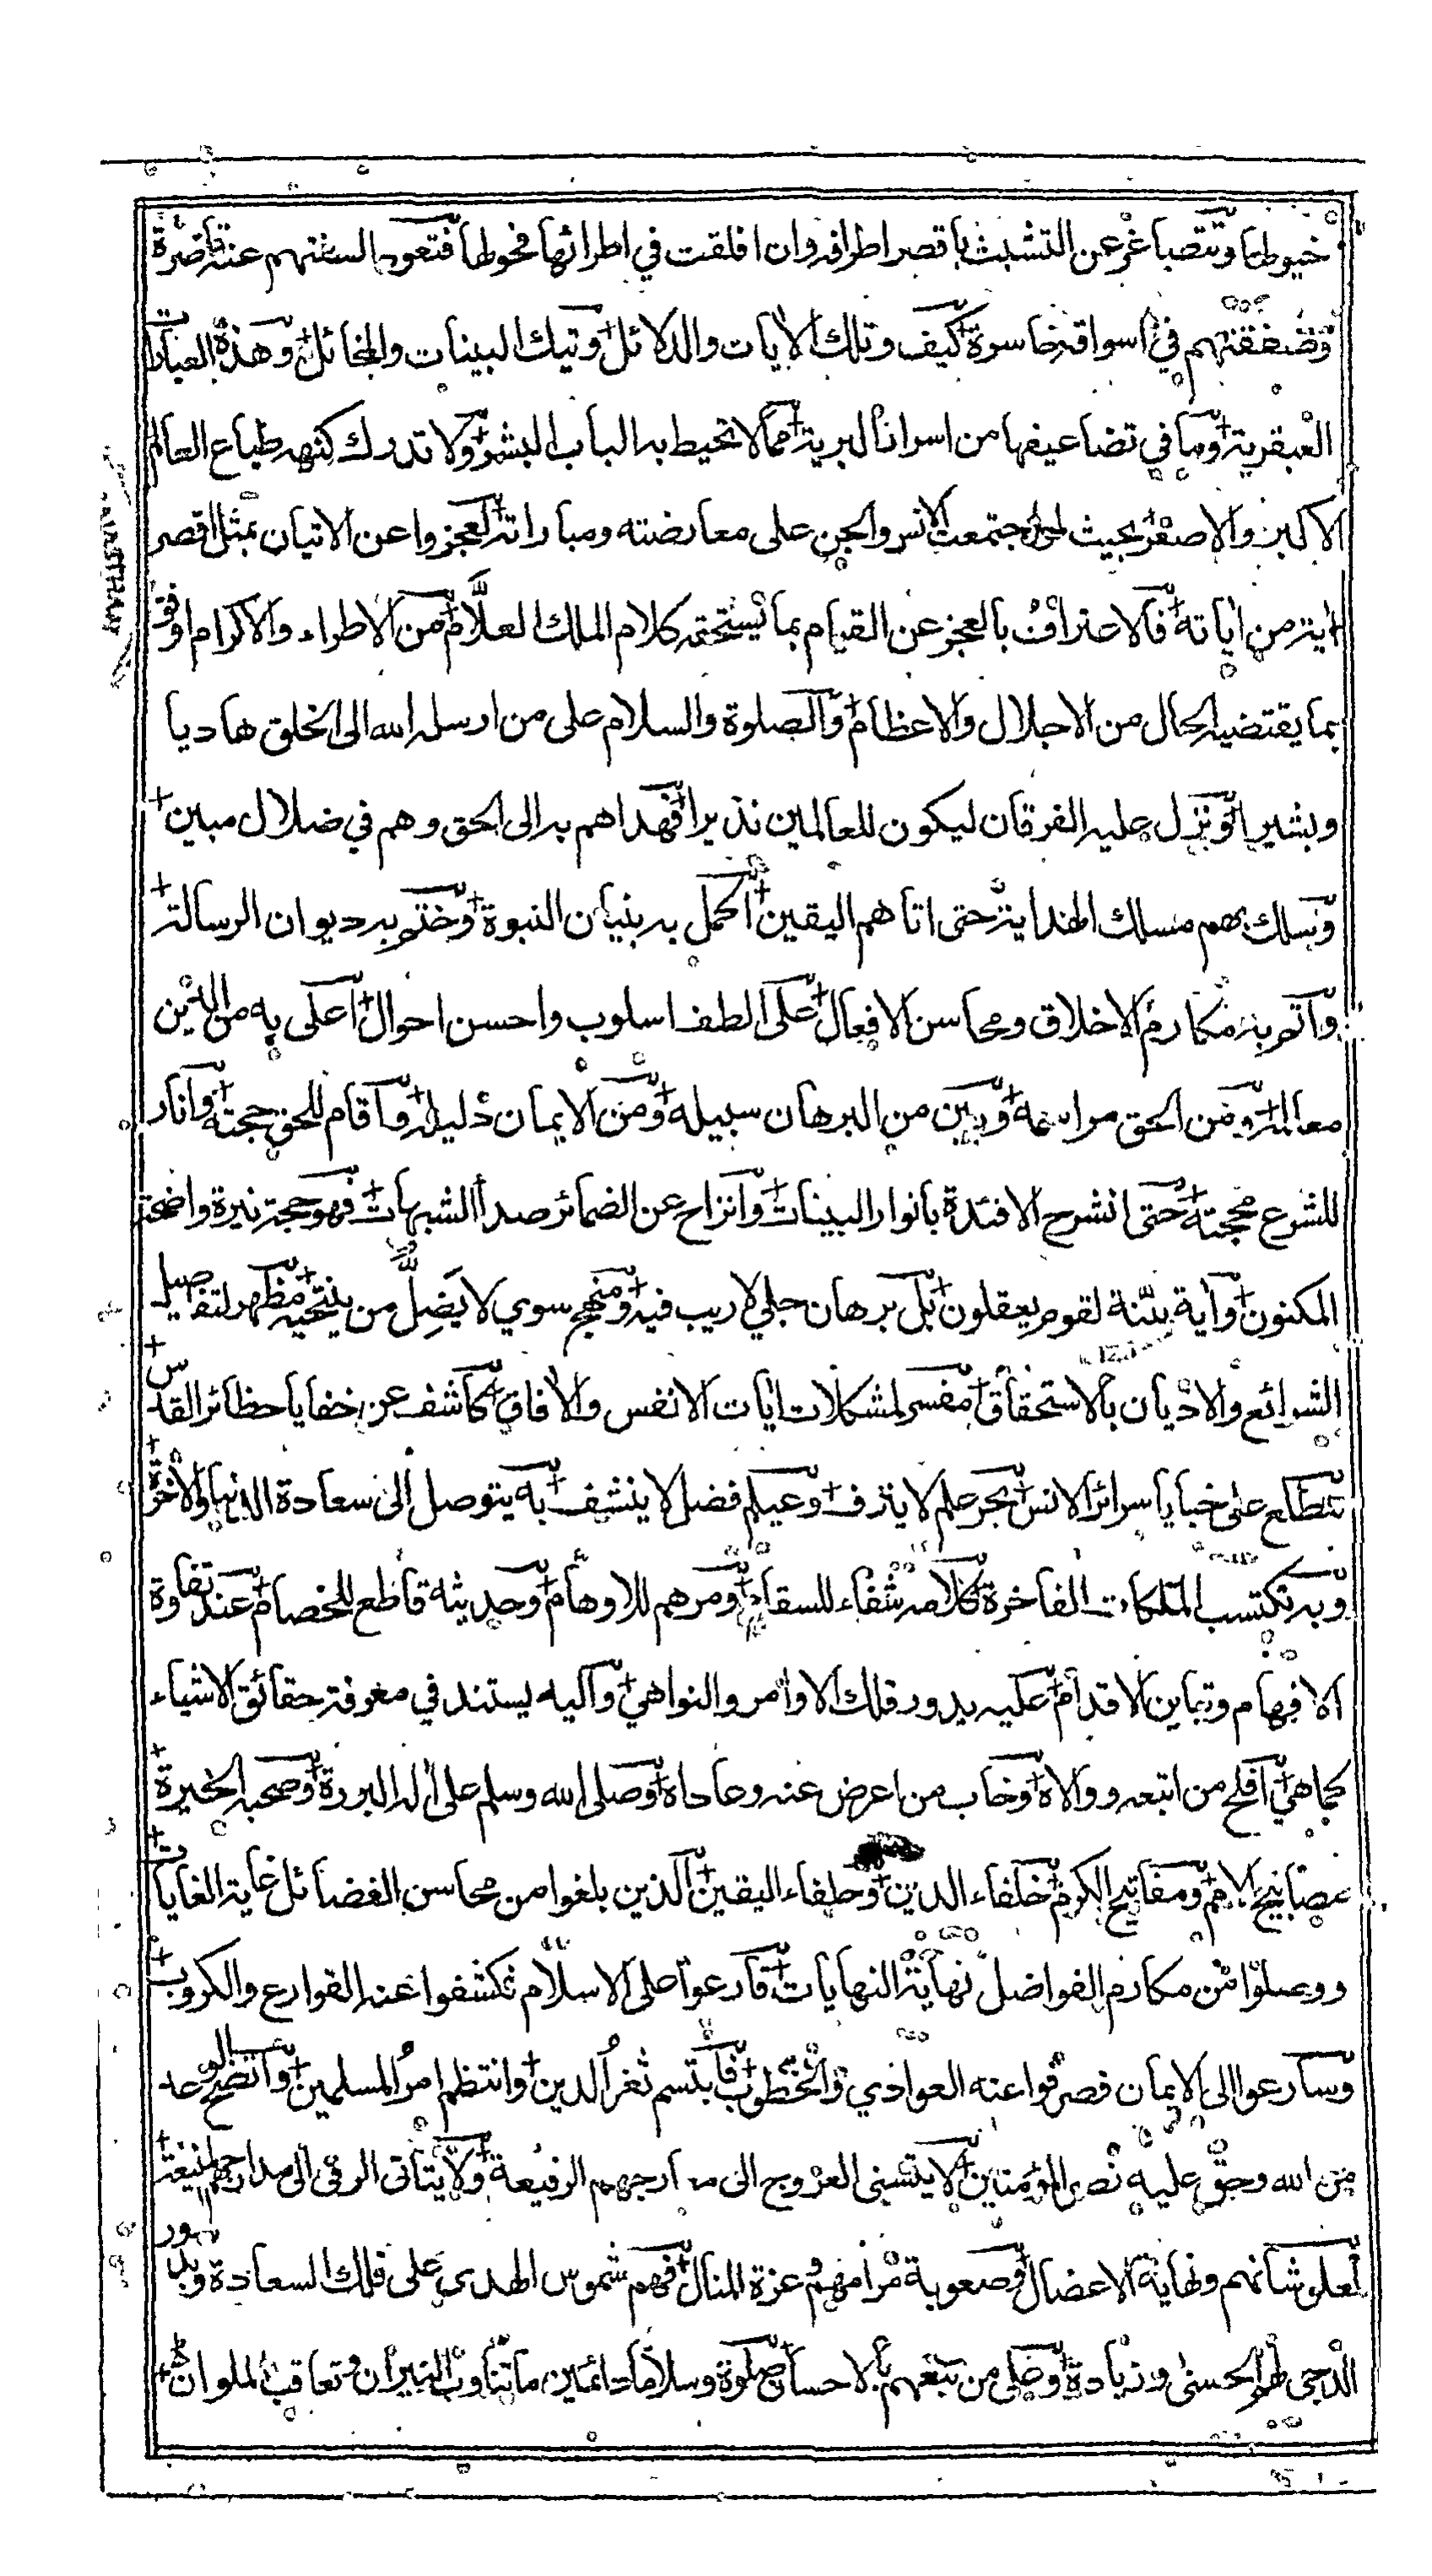 خيوطها وتتصباغر عن التشبث باقصر اطرافه وان افلقت في اطرائها فحوطها فتعود السنتهم عنه قاصرة
وصفقتهم في اسواقه خاسرة كيف وتلك الايات والدلائل وتيك البينات والمخائل وهذه العبارات
العبقرية وما في تضاعيفها من اسرار البرية مما لا تحيط به الباب البشر ولا تدرك كنهه طباع العالم
الاكبر والاصغر بحيث لو اجتمعت الانس والجن على معارضته ومباراته لعجزوا عن الاتيان بمثل اقصر
اية من اياته فالاعتراف بالعجز عن القيام بما يستحقه كلام الملك العلام من الاطراء والاكرام اوفق
بما يقتضيه الحال من الاجلال والاعظام والصلوة والسلام على من ارسله الله الى الخلق هاديا
وبشيرا ونزل عليه الفرقان ليكون للعالمين نذيرا فهداهم به الى الحق وهم في ضلال مبين
وسلك بهم مسلك الهداية حتى اتاهم اليقين اكمل به بنيان النبوة وختم به ديوان الرسالة
واتم به مكارم الاخلاق ومحاسن الافعال على الطف اسلوب واحسن احوال اعلى به من الدين
معالمه ومن الحق مراسمه وبين من البرهان سبيله ومن الايمان دليله واقام للحق حجته وانار
للشرع محجته حتى انشرح الافئدة بانوار البينات وانزاح عن الضمائر صدأ الشبهات فهو حجة نيرة واضحة
المكنون واية بينة لقوم يعقلون بل برهان جلي لا ريب فيه ومنهج سوي لا يَضِلُّ من ينتحيه مظهر لتفاصيل
الشرائع والاديان بالاستحقاق مفسر لمشكلات ايات الانفس والافاق كاشف عن خفايا حظائر القدس
مطلع على خبايا سرائر الانس بحر علم لا ينزف وعيلم فضل لا ينشف به يتوصل الى سعادة الدنيا والاخرة
وبه تكتسب الملكات الفاخرة كلامه شفاء للسقام ومرهم للاوهام وحديثه قاطع للخصام عند تفاوة
الافهام وتباين الاقدام عليه يدور فلك الاوامر والنواهي واليه يستند في معرفة حقائق الاشياء
كما هي افلح من اتبعه ووالاه وخاب من اعرض عنه وعاداه وصلى الله وسلم على اله البررة وصحبه الخيرة
مصابيح الامم ومفاتيح الكرم خلفاء الدين وحلفاء اليقين الذين بلغوا من محاسن الفضائل غاية الغايات
ووصلوا من مكارم الفواضل نهاية النهايات قارعوا على الاسلام فكشفوا عنه القوارع والكروب
وسارعوا الى الايمان فصرفوا عنه العوادي والخطوب فابتسم ثغر الدين وانتظم امر المسلمين واتضح الوعد
من الله وحق عليه نصر المؤمنين لا يتسنى العروج الى معارجهم الرفيعة ولا يتأتى الرقي الى مدارجهم المنيعة
لعلو شانهم ونهاية الاعضال وصعوبة مرامهم وعزة المنال فهم شموس الهدى على فلك السعادة وبدور
الدجى لهم الحسنى وزيادة وصلى من تبعهم بالاحسان صلوة وسلاما دائمين ما تناوب النيران وتعاقب الملوان